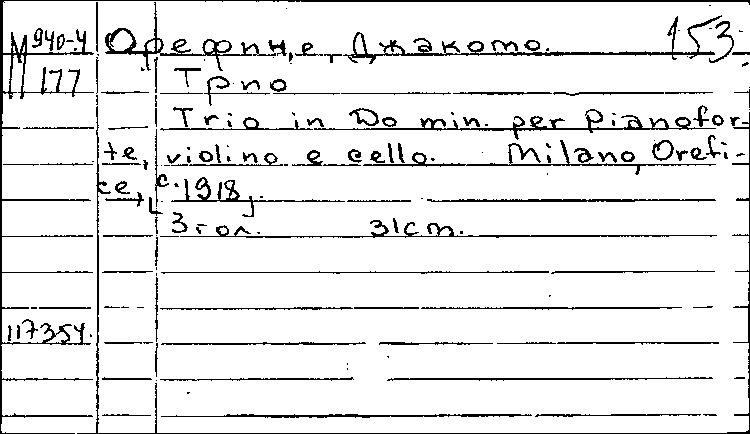 М 940-4 Орефичe, Джакомо. 153
П 177 Трио
Trio in Do min. per pianofor-
te, violino e cello. Milano, Orefi-
ce, [c. 1918].
3 гол. 31cm.
117354.